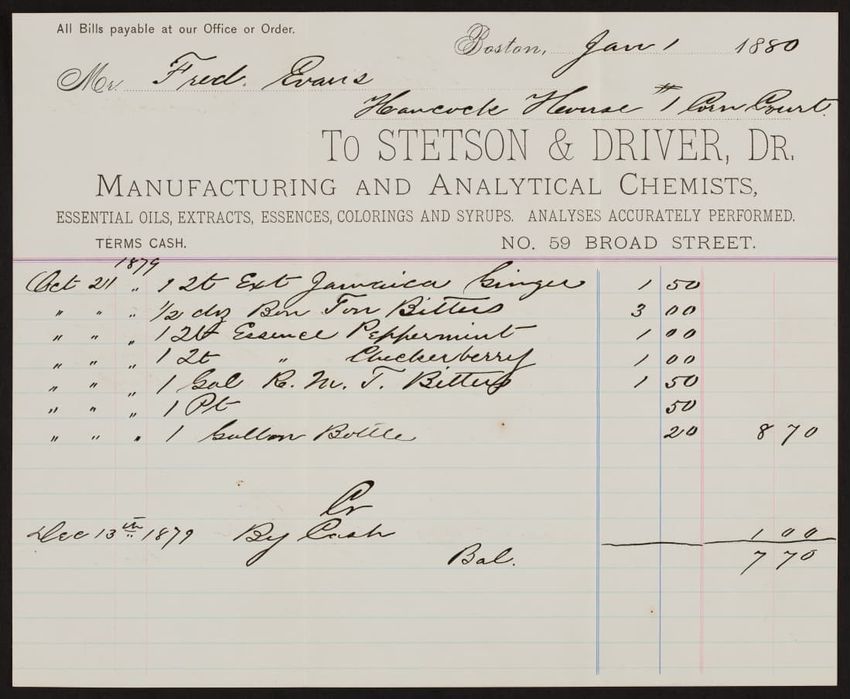 All Bills payable at our Office or Order.
Boston, Jan 1 1880
Mr. Fred. Evans
Hancock House #1 Corn Court.
To STETSON & DRIVER, DR.
MANUFACTURING AND ANALYTICAL CHEMISTS,
ESSENTIAL OILS, EXTRACTS, ESSENCES, COLORINGS AND SYRUPS. ANALYSES ACCURATELY PERFORMED.
TERMS CASH. NO. 59 BROAD STREET.
1879
Oct 21 " 1 Qt Ext Jamaica Ginger 1 50
" " " 1/2 dz Bon Ton Bitters 3 00
" " " 1 Qt Essence Peppermint 1 00
" " " 1 Qt " Checkerberry 1 00
" " " 1 Gal R. M. T. Bitters 1 50
" " " 1 Pt 50
" " " 1 Gallon Bottle 20 8 70
Cr
Dec 13th 1879 By Cash 1 00
Bal. 7 70